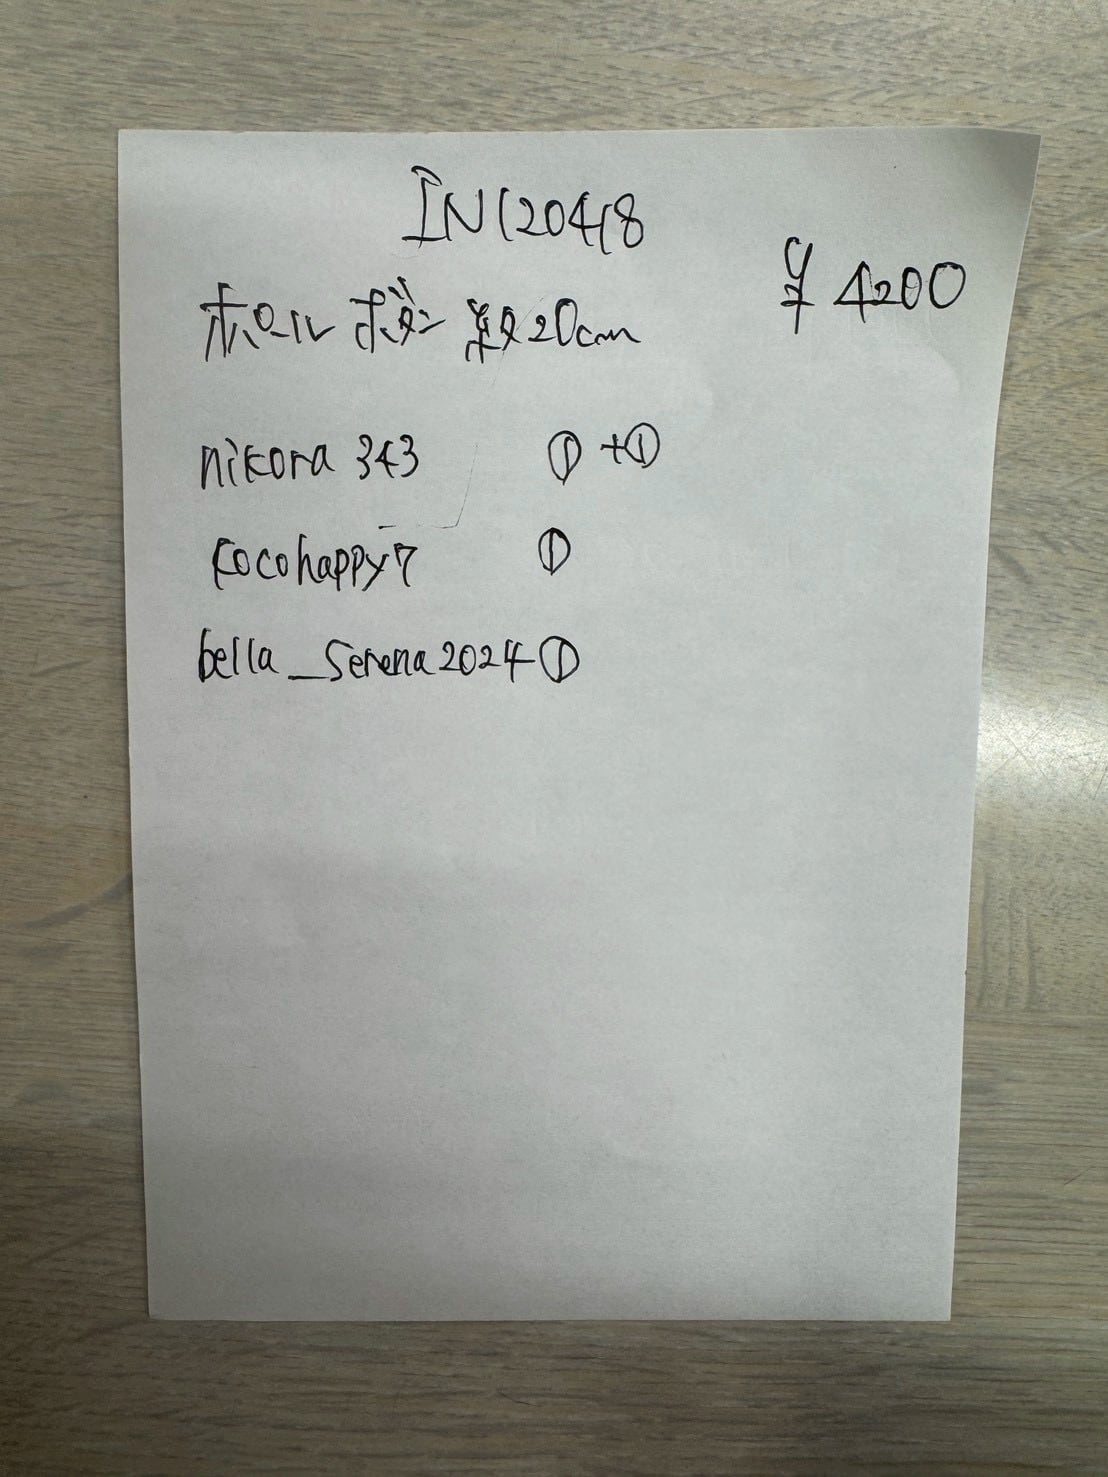 IN120418
¥4200
ホロール ボタン 約20cm
nikora 343 ① +①
cocohappy7 ①
bella_serena2024 ①